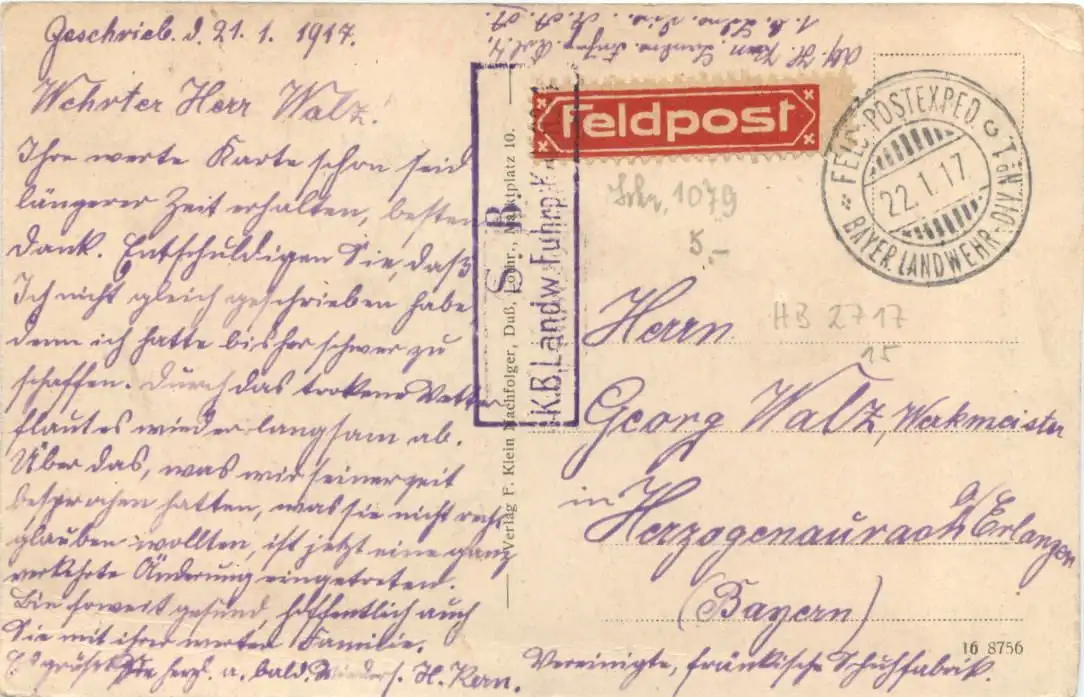 Geschrieb. d. 21. 1. 1917.
Wehrter Herr Walz!
Ihre werte Karte schon seid
längerer Zeit erhalten, besten
Dank. Entschuldigen Sie, daß
Ich nicht gleich geschrieben habe,
denn ich hatte bisher schwer zu
schaffen. Durch das trokene Wetter
flaut es wieder langsam ab.
Über das, was wir seinerzeit
besprochen hatten, was sie nicht recht
glauben wollten, ist jetzt eine ganz
verkehrte Änderung eingetreten.
Bin soweit gesund, hoffentlich auch
Sie mit ihrer werten Familie.
Es grüßt Sie herzl. a. bald. Wieders. H. Kern.
H. Kern
S. B.
K.B. Landw. Fuhrp. K
Verlag F. Klein Nachfolger, Duß, Lothr., Marktplatz 10.
Feldpost
FELD-POSTEXPED.
BAYER. LANDWEHR-DIV. No. 1
22.1.17
1079
5,-
HB 2717
15
Herrn
Georg Walz, Werkmeister
in
Herzogenaurach a/Erlangen
(Bayern)
16 8756
Vereinigte, fränkische Schuhfabrik.